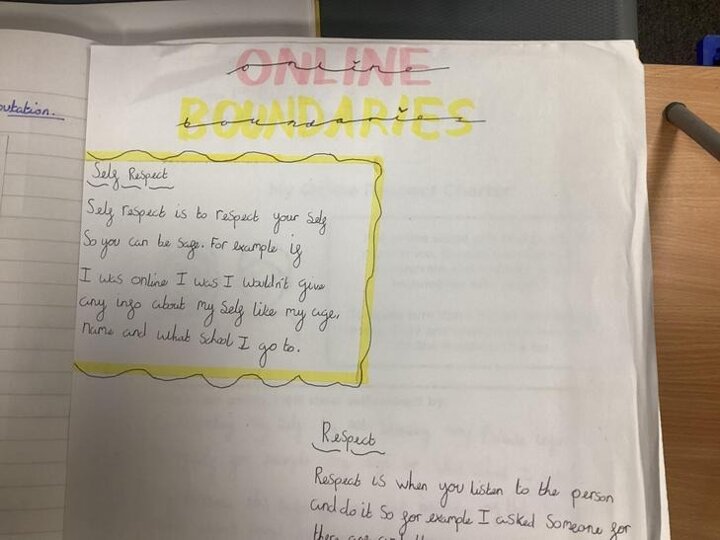 outation.
ONLINE
online
BOUNDARIES
boundaries
Self Respect
Self respect is to respect your self
So you can be safe. For example if
I was online I was I wouldn't give
any info about my self like my age,
name and what School I go to.
Respect
Respect is when you listen to the person
and do it So for example I asked Someone for